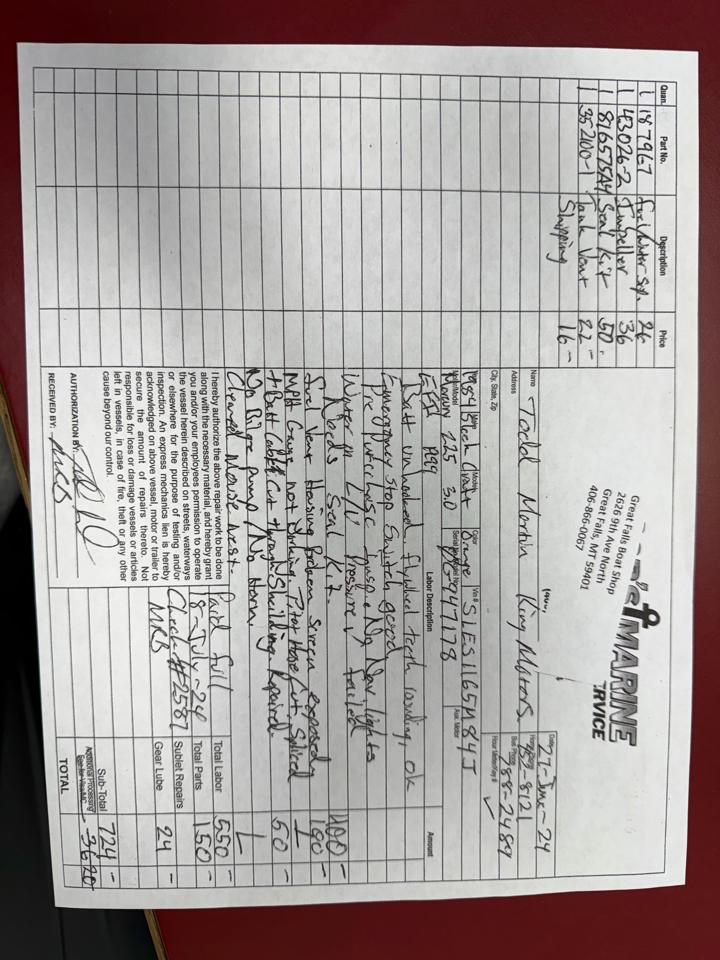 MARINE
SERVICE
Great Falls Boat Shop
2626 9th Ave North
Great Falls, MT 59401
406-866-0067
Date 27-June-24
Name Todd Martin King Motors
Home Phone 789-8121
Address
Bus. Phone 788-2489
City, State, Zip
Hour Meter/Key # ✓
1984 Orange Vin # SLES1165M84J
Mercury 225 3.0 0G947178 Aux. Motor
Quan. Part No. Description Price
1 187967 Fuel/Water Sep. 26
1 43026-2 Impeller 36
1 816575A4 Seal Kit 50
1 35-2100-1 Tank Vent 22 -
Shipping 16 -
Labor Description Amount
EFI 1999
Batt unhooked flywheel teeth landing, ok
Emergency Stop Switch good
Pre Purchase Insp. No Nav lights
Water ✓ L/U Pressure failed 400 -
Needs Seal Kit. 100 -
fuel Vent Housing Broken screen exposed 1
MPH Gauge not working Pitot Hose Cut, Spliced
+ Batt cable cut through Shielding Repaired 50 -
No Bilge pump / No Horn 1
Cleaned Mouse nest.
I hereby authorize the above repair work to be done
along with the necessary material, and hereby grant
you and/or your employees permission to operate
the vessel herein described on streets, waterways
or elsewhere for the purpose of testing and/or
inspection. An express mechanics lien is hereby
acknowledged on above vessel, motor or trailer to
secure the amount of repairs thereto. Not
responsible for loss or damage vessels or articles
left in vessels, in case of fire, theft or any other
cause beyond our control.
AUTHORIZATION BY:
RECEIVED BY: MRB
Paid full
8-July-24
Check #2587
MRB
Total Labor 550 -
Total Parts 150 -
Sublet Repairs
Gear Lube 24 -
Sub-Total 724 -
Additional Processing 36.20
TOTAL